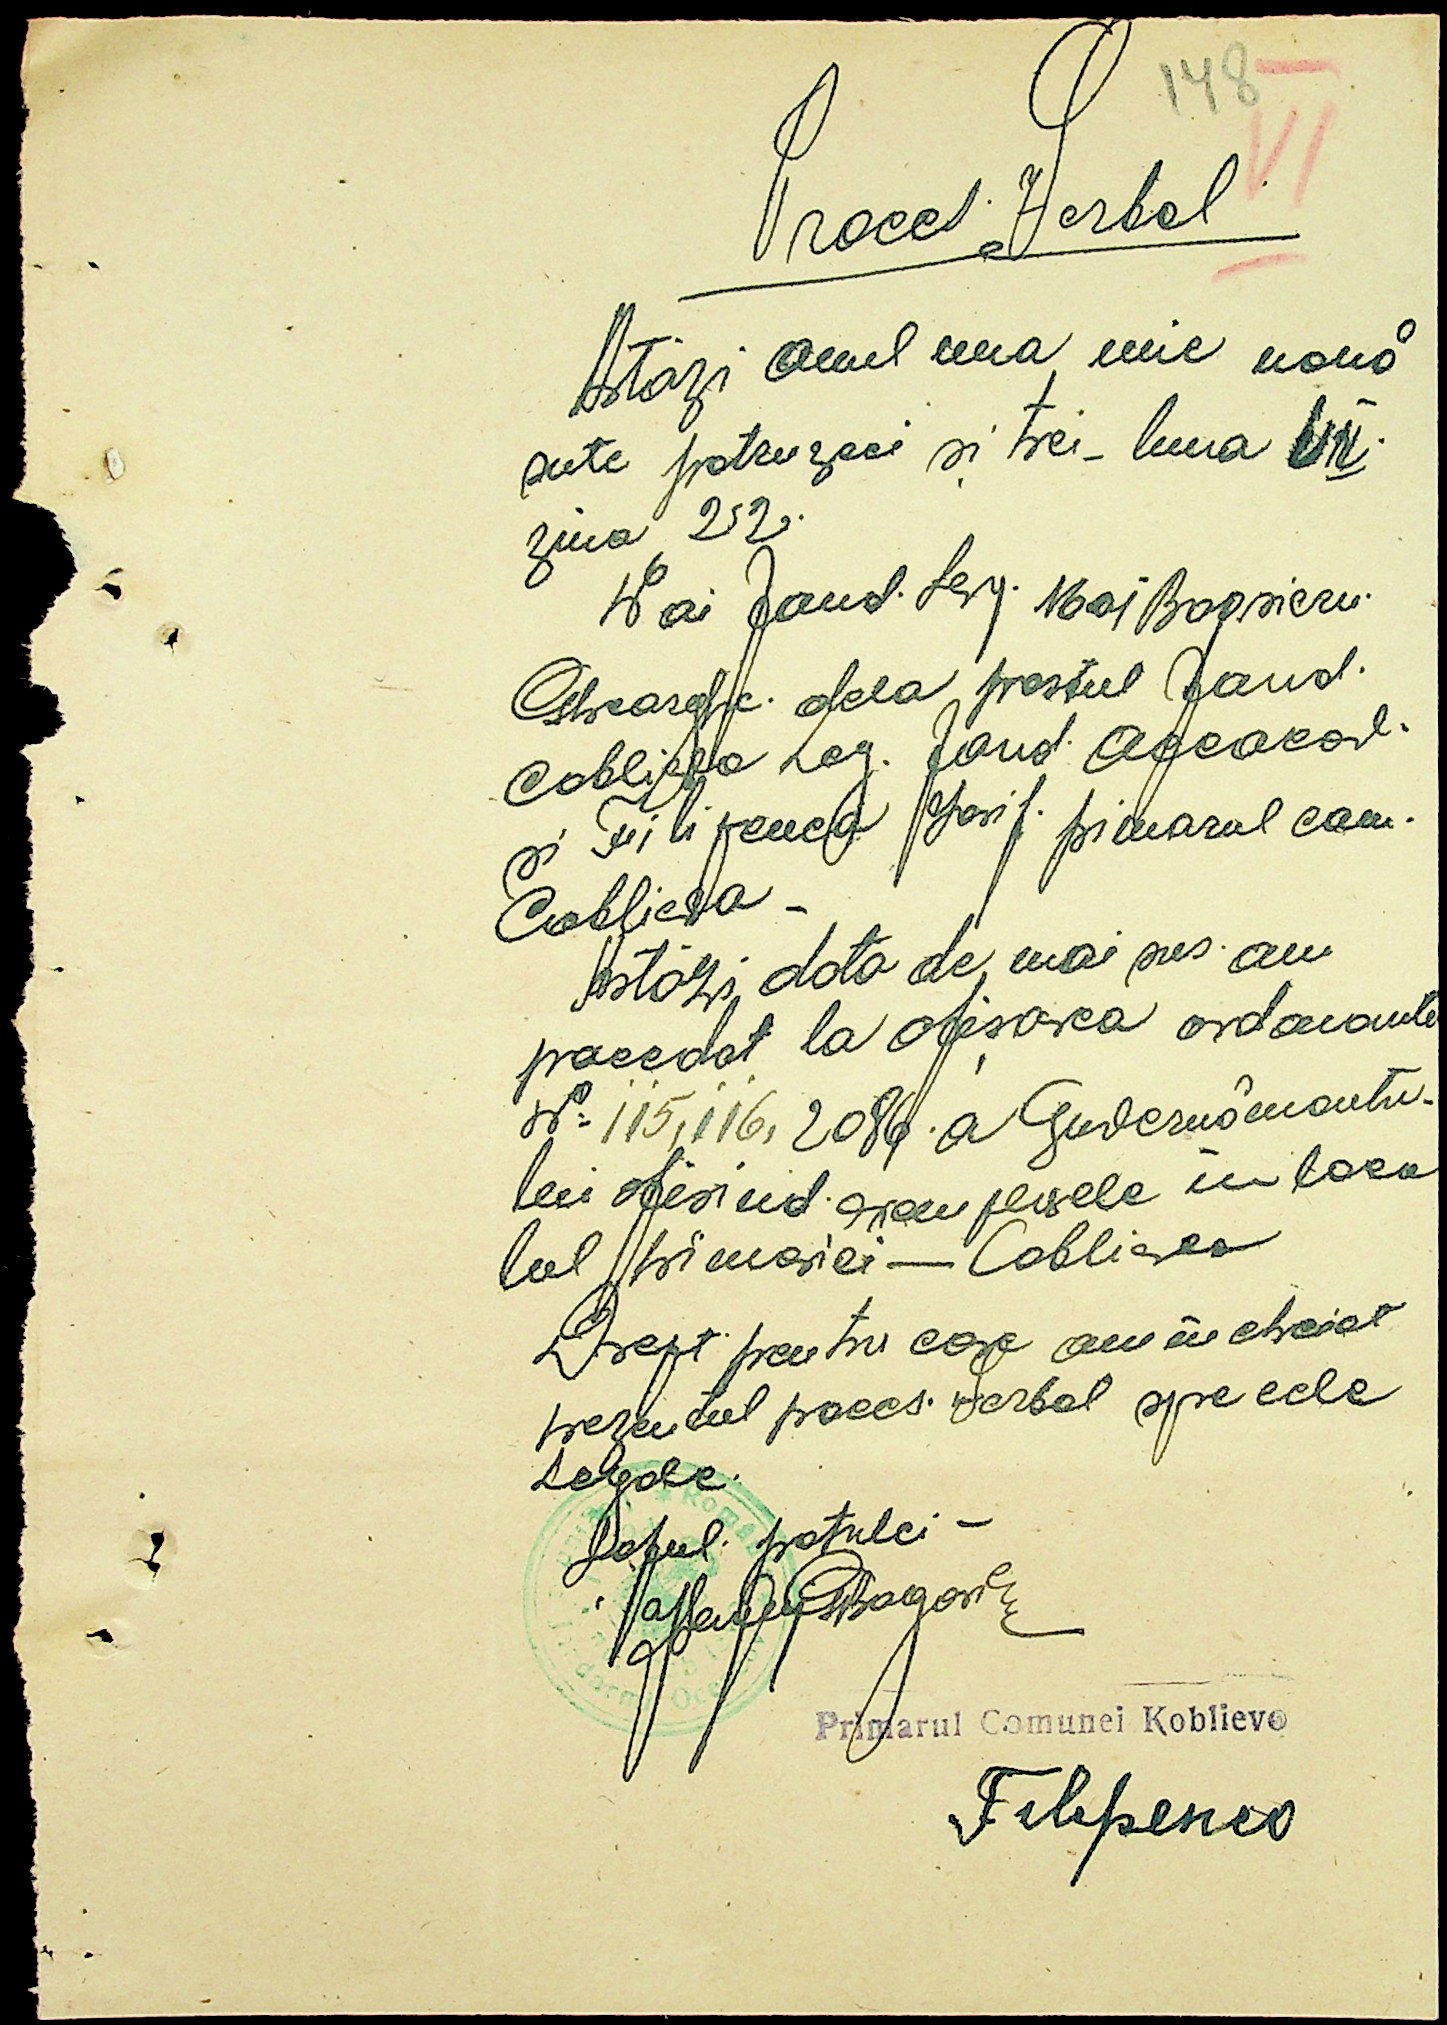 148
VI
Proces Verbal
Astăzi anul una mie nouă
sute patruzeci și trei - luna VII.
ziua 22.
Noi Jand. Serg. Maj
Gheorghe. dela postul Jand.
Coblievca Leg. Jand. Oceacov.
și Filipenco Iosif. primarul com.
Coblievca -
Astăzi data de mai sus. am
procedat la afișarea ordonante
No: 115, 116, 2086. a Guvernămontu-
lui afișind. exemplarele în loca
lul primăriei — Coblievca
Drept pentru care am încheiat
prezentul proces. Verbal spre cele
Legale.
Șeful. postului -
Primarul Comunei Koblievo
Filipenco